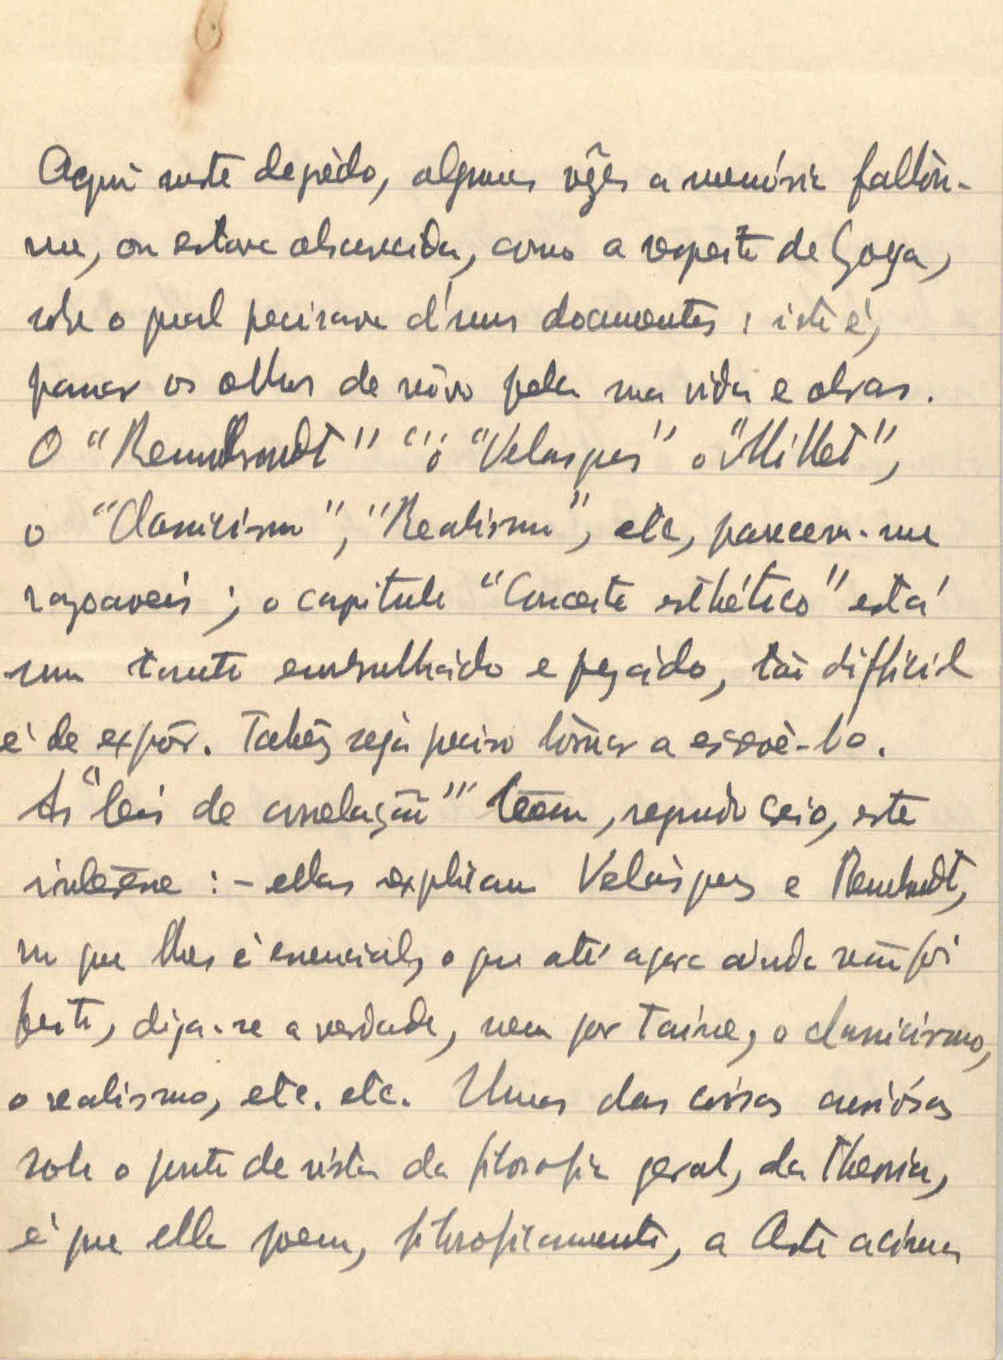 Aqui neste degrêdo, algumas vêzes a memória faltou-
me, ou estava obscurecida, como a respeito de Goya,
sobre o qual precisava d'uns documentos; isto é,
passar os olhos de nôvo pela sua vida e obras.
O "Rembrandt" "o "Velasques" o "Millet",
o "Classicismo", "Realismo", etc, parecem-me
razoaveis; o capitulo "Conceito esthético" está
um tanto embrulhádo e pezádo, tão difficil
é de expôr. Talvêz seja preciso tornar a escrevê-lo.
As "leis de correlação" têem, segundo creio, este
interêsse: - ellas explicam Velásques e Rembrandt,
no que lhes é essencial, o que até agora ainda não foi
feito, diga-se a verdade, nem por Taine, o classicismo,
o realismo, etc. etc. Umas das coisas curiósas
sob o ponto de vista da filosofia geral, da theoria,
é que ella poem, filosoficamente, a Arte acima